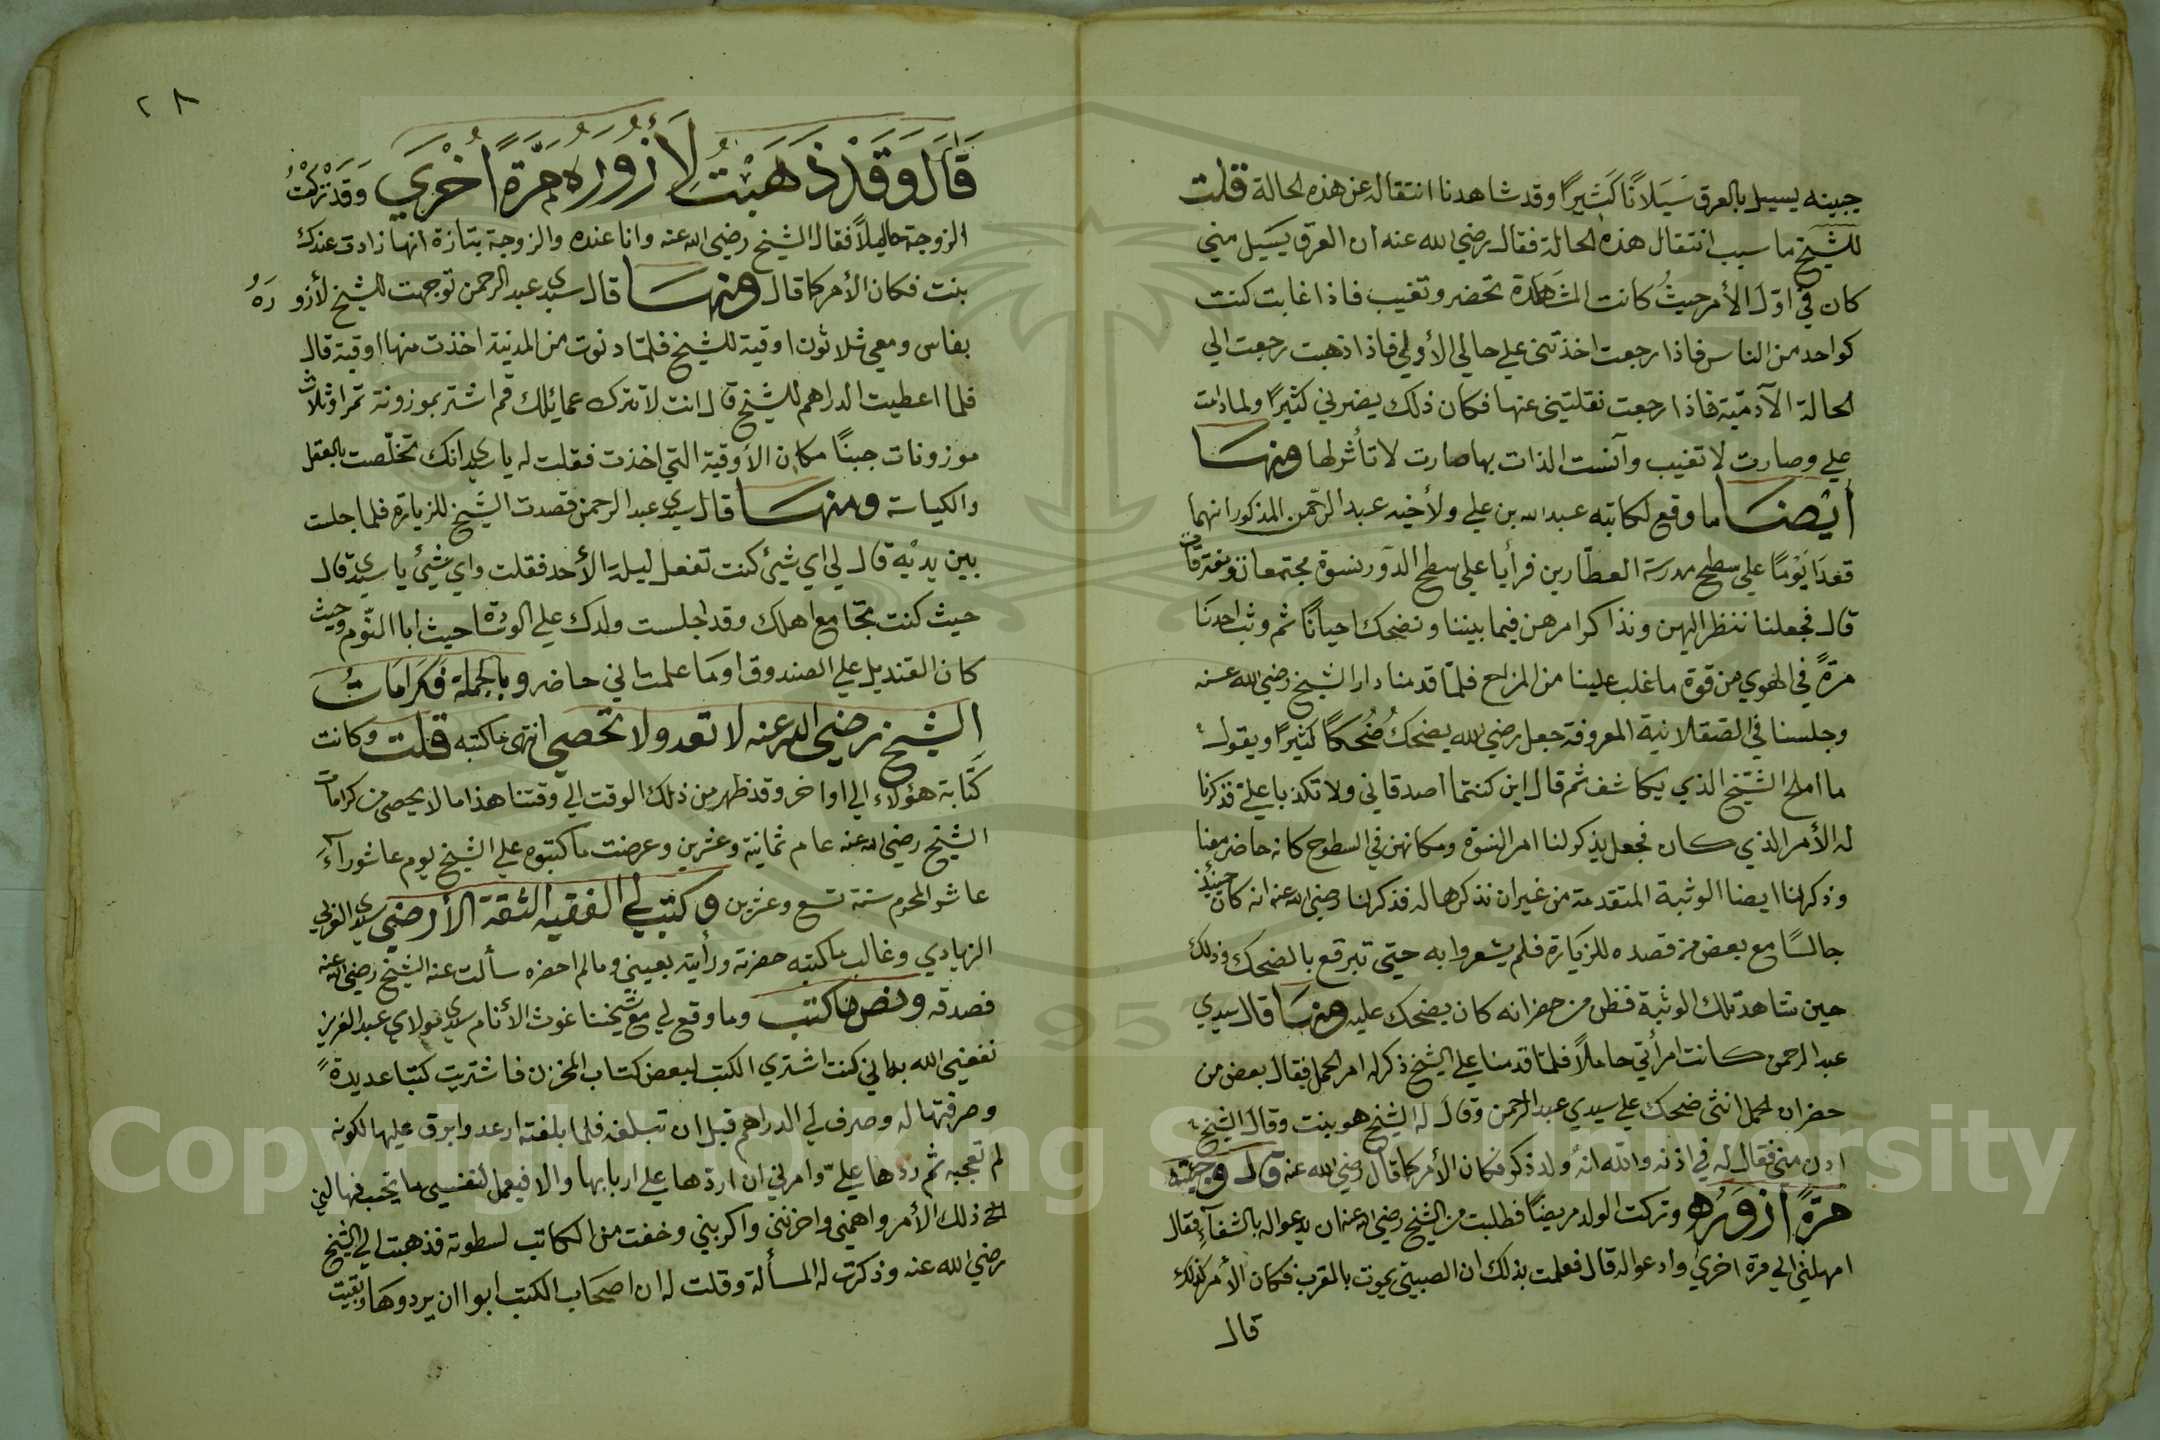 جبينه يسيل بالعرق سَيَلَانًا كَثِيرًا وقد شاهدنا انتقاله عن هذه الحالة قلت
للشيخ ما سبب انتقال هذه الحالة فقال رضي الله عنه ان العرق يسيل مني
كان في اوّل الأمر حيثُ كانت المشاهدة تحضر وتغيب فاذا غابت كنت
كواحد من الناس فاذا رجعت اخذتني علي حالي الأولي فاذا ذهبت رجعت الي
الحالة الآدميّة فاذا رجعت نقلتني عنها فكان ذلك يضرني كثيرًا ولما دامت
علي وصارت لا تغيب وآنست الذات بها صارت لا تتأثر لها ومنها
ايضا ما وقع لكاتبه عبد الله بن علي ولأخيه عبد الرحمن المذكور انهما
قعدا يَوْمًا علي سطح مدرسة العطّارين فرأيا علي سطح الدور نسوة مجتمعات ومفترقات
قال فجعلنا ننظر اليهن ونذاكر امرهن فيما بيننا ونضحك احيانًا ثم وثب احدنا
مرةً في الهوي من قوة ما غلب علينا من المزاح فلمّا قدمنا دار الشيخ رضي الله عنه
وجلسنا في الصقلانية المعروفة جعل رضي الله يضحكُ ضُحكًا كثيرًا ويقول
ما املح الشَّيخ الذي يكاشف ثم قال اين كنتما اصدقاني ولا تكذبا عليّ فذكرنا
له الأمر الذي كان فجعل يذكر لنا امر النسوة ومكانهن في السطوح كانه حاضر معنا
وذكر لنا ايضا الوثبة المتقدمة من غير ان نذكرها له فذكر لنا رضي الله عنه انه كان حينئذ
جالسًا مع بعض من قصده للزيارة فلم يشعروا به حتي تبرقع بالضحك وذلك
حين شاهد تلك الوثبة فظن من حضر انه كان يضحك عليه ومنها قال سيدي
عبد الرحمن كانت امرأتي حاملًا فلمّا قدمنا علي الشيخ ذكر له امر الحمل فقال بعض من
حضر ان الحمل انثى ضحك علي سيدي عبد الرحمن وقال له الشيخ هو بنت وقال الشيخ
ادن مني فقال له في اذنه والله انه ولد ذكر فكان الأمر كما قال رضي الله عنه قال وجئته
مرةً ازوره وتركت الولد مريضًا فطلبت من الشيخ رضي الله عنه ان يدعو له بالشفآء فقال
امهلني الي مرة اخري وادعو له قال فعلمت بذلك ان الصبي يموت بالقرب فكان الأمر كذلك
قال
٢٨
قَالَ وَقَدْ ذَهَبْتُ لِأَزُورَهُ مَرَّةً اُخْرَي وَقَدْ تَرَكْتُ
الزوجة حاملًا فقال الشيخ رضي الله عنه وانا عنده والزوجة بتازة انها زادت عندك
بنت فكان الأمر كما قال ومنها قال سيدي عبد الرحمن توجهت للشيخ لأزوره
بفاس ومعي ثلاثون اوقية للشيخ فلمّا دنوت من المدنية اخذت منها اوقية قال
فلما اعطيت الدراهم للشيخ قال انت لا تترك عمائلك قم اشتر بموزونة تمرا وثلاث
موزونات جبنًا مكان الأوقية التي اخذت فقلت له يا سيدي انك تخلّصت بالعقل
والكياسة ومنها قال سيدي عبد الرحمن قصدت الشيخ للزيارة فلما جلست
بين يديه قال لي اي شيئ كنت تفعل ليلة الأحد فقلت واي شيئ يا سيدي قال
حيث كنت تجامع اهلك وقد اجلست ولدك علي الوسادة حيث ابا النّوم وحيث
كان القنديل علي الصندوق او ما علمت اني حاضر وبالجملة فَكَرَامَاتُ
الشيخ رضي الله عنه لا تعد ولا تحصي انتهى ما كتبه قلت وكانت
كَتَابة هؤلاء الي اواخر وقد ظهر من ذلك الوقت الي وقتنا هذا ما لا يحصي من كرامات
الشيخ رضي الله عنه عام ثمانية وعشرين وعرضت ما كتبوه علي الشيخ يوم عاشورآء
عاشر المحرم سنة تسع وعشرين وكتب لي الفقيه الثقة الأرضي سيدي العربي
الزيادي وغالب ما كتبه حضرته ورأيته بعيني وما لم احضره سألت عنه الشيخ رضي الله عنه
فصدقه ونص ما كتب وما وقع لي مع شيخنا غوث الأنام سيدي مولاي عبد العزيز
نفعني الله به اني كنت اشتري الكتب لبعض كتاب المخزن فاشتريت كتبا عديدةً
وصرفتها له وصرف لي الدراهم قبل ان تبلغه فلما بلغته ارعد وابرق عليها لكونه
لم تعجبه ثم ردها عليّ وامرني ان اردها علي اربابها والا فيعمل لنفسي ما يخب فهالني
ذلك الأمر واهمني واحزنني واكربني وخفت من الكاتب لسطوته فذهبت الي الشيخ
رضي الله عنه وذكرت له المسألة وقلت له ان اصحاب الكتب ابوا ان يردوها وبقيت